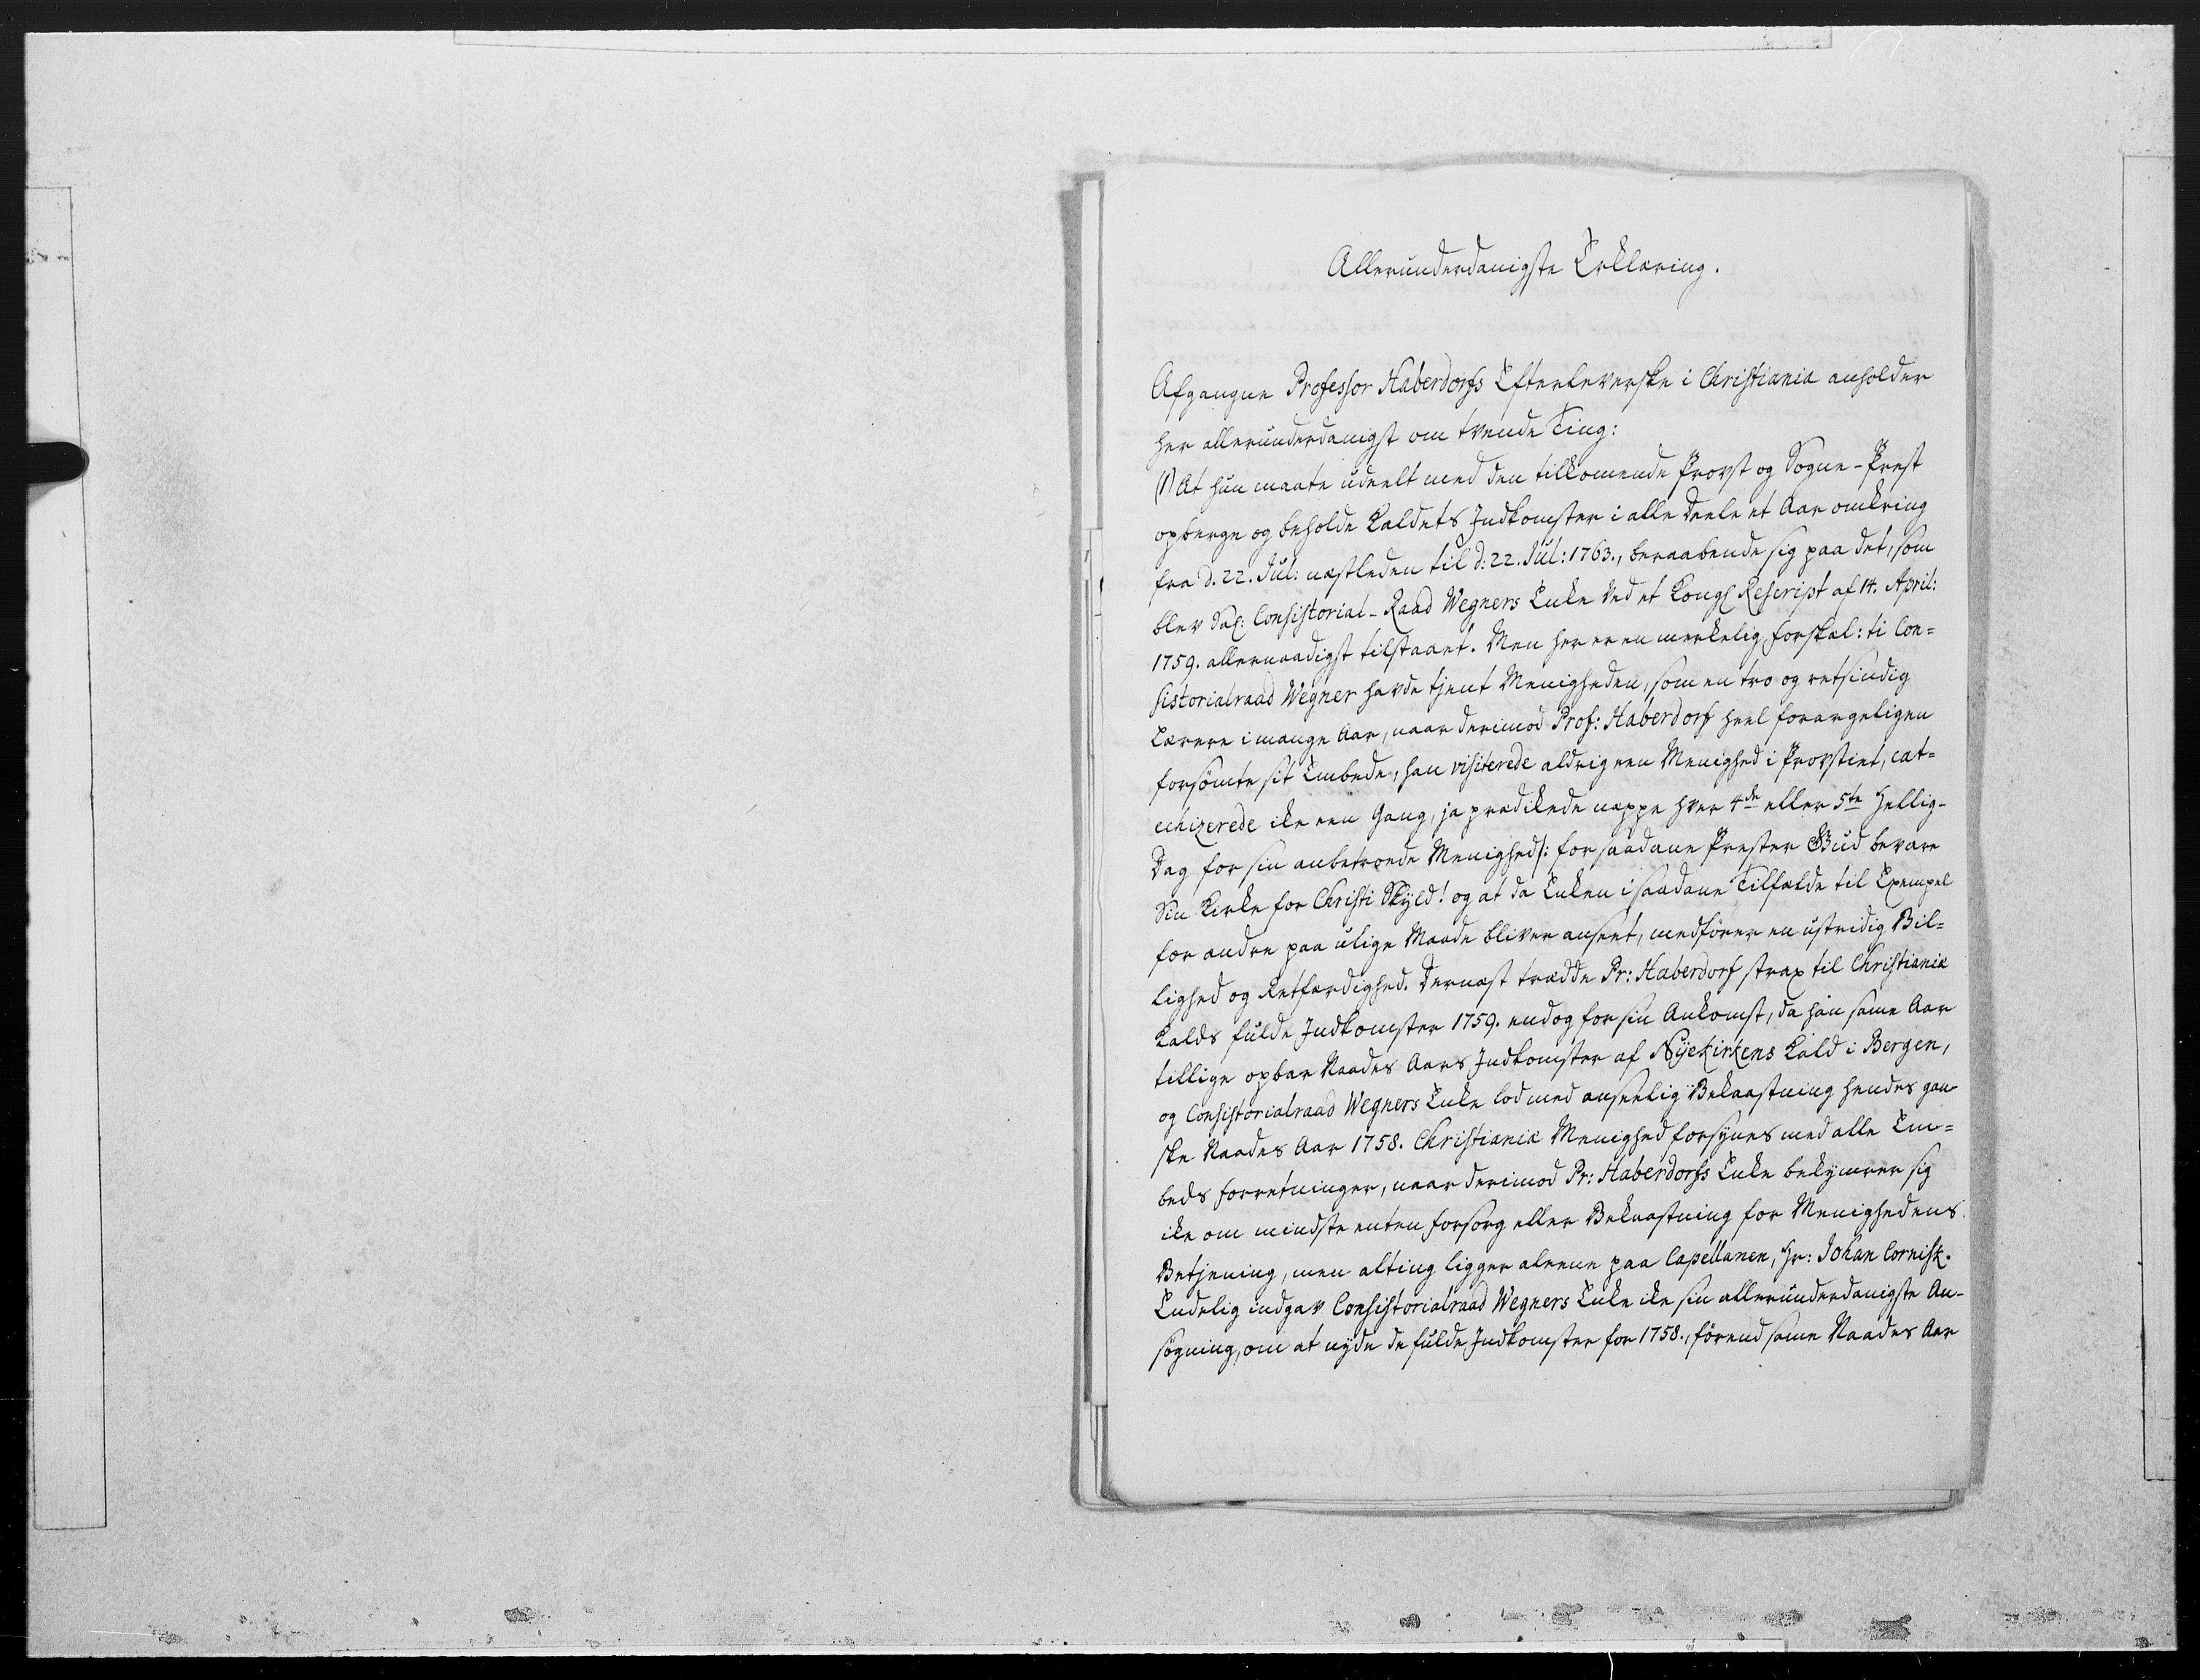 Allerunderdanigste Erklæring.
Afgangne Professor Haberdorfs Efterleverske i Christiania anholder
her allerunderdanigst om tvende Ting:
(1) At hun maate udeelt med den tilkomende Provst og Sogne-Prest
opberge og beholde Kaldets Indkomster i alle Deele et Aar omkring
fra d. 22. Jul: næstleden til d: 22. Jul: 1763., beraabende sig paa det, som
blev Sal: Consistorial-Raad Wegners Enke ved et Kongl Rescript af 14. April:
1759. allernaadigst tilstaaet. Men her er en merkelig forskæl: ti Con=
sistorialraad Wegner havde tjent Menigheden, som en tro og retsindig
Lærere i mange Aar, naar derimod Prof: Haberdorf heel forargeligen
forsömte sit Embede, han visiterede aldrig een Menighed i Provstiet, cat=
echizerede ike een Gang, ja prædikede neppe hver 4de eller 5te Hellig-
Dag for sin anbetroede Menighed/: for saadane Prester Gud bevare
Sin Kirke for Christi Skyld! og at da Enken i saadane Tilfælde til Exempel
for andre paa ulige Maade bliver anseet, medförer en ustridig Bil=
lighed og Retfærdighed. Dernæst trædde Pr: Haberdorf strax til Christianiæ
Kalds fulde Indkomster 1759. endog for sin Ankomst, da han same Aar
tillige opbar Naades Aars Indkomster af Nÿekirkens Kald i Bergen,
og Consistorialraad Wegners Enke lod med anseelig Bekaastning hendes gan-
ske Naades Aar 1758. Christianiæ Menighed forsynes med alle Em=
beds forretninger, naar derimod Pr: Haberdorfs Enke bekymrer sig
ike om mindste enten forsorg eller Bekaastning for Menighedens
Betjening, men alting ligger aleene paa Capellanen, Hr: Johan Cornisk.
Endelig indgav Consistorialraad Wegners Enke ike sin allerunderdanigste An-
sögning, om at nyde de fulde Indkomster for 1758., förend same Naades Aar